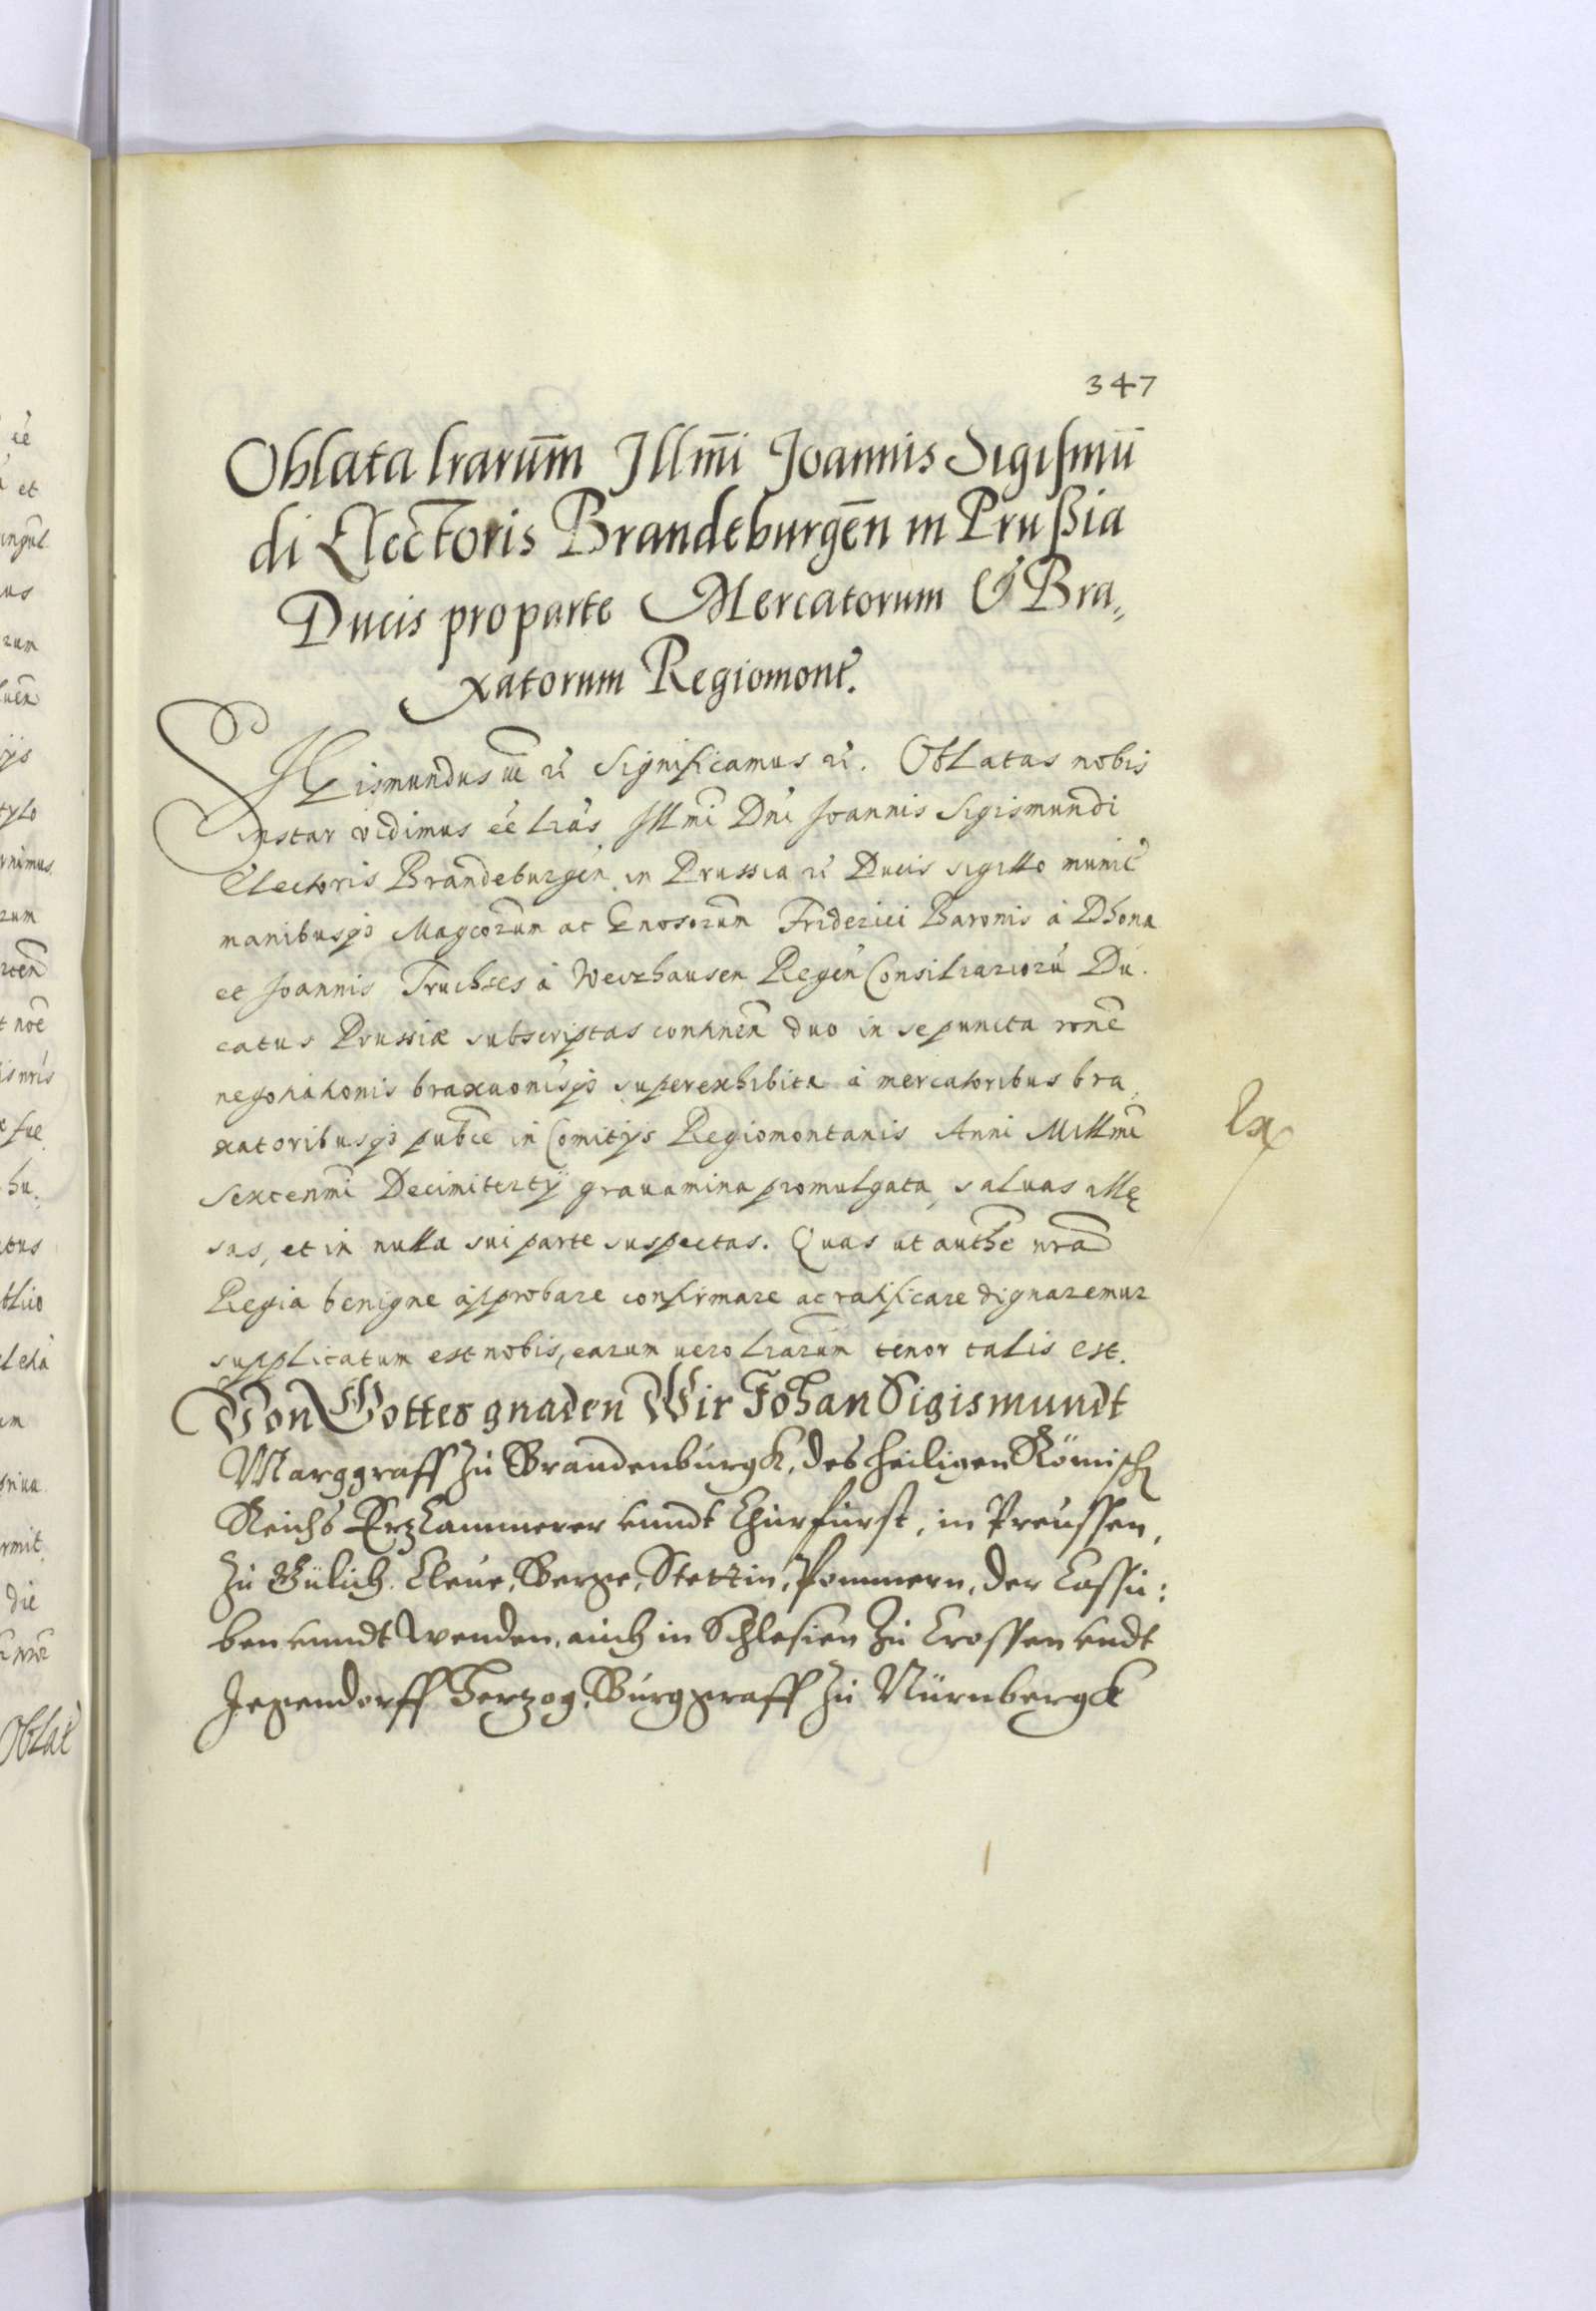 347
Oblata lrarum̄ Illmi Joannis Sigismū
di Electoris Brandeburgēn in Prußia
Ducis pro parte Mercatorum & Bra,,
xatorum Regiomont.
SIgismundus III etc Significamus etc. Oblatas nobis
instar vidimus eē lrās Illmi Dni Joannis Sigismundi
Electoris Brandeburgēn in Prussia etc Ducis sigillo munit
manibusqз Magcorum ac Gnosorum Friderici Baronis à Dhona
et Joannis Truchses à Wetzhausen Regēn Consiliariorū Du.
catus Prussiæ subscriptas continēn duo in se puncta rōne
negotiationis braxaōnisqз super exhibita à mercatoribus bra,
xatoribusqз publce in Comitijs Regiomontanis Anni Millmi
Sexcenmi Decimitertij gravamina promulgata, salvas illę
sas, et in nulla sui parte suspectas. Quas ut authe nrā
Regia benigne approbare confirmare ac ratificare dignaremur
supplicatum est nobis, earum vero lrarum tenor talis est.
Von Gottes gnaden Wir Johan Sigismundt
Marggraff zu Brandenburgk, des heiligen Römisch
Reichs Ertzcammerer unndt Churfürst, in Preussen,
zu Gülich. Cleve, Berge, Stettin, Pommern, der Cassu:
ben unndt Wenden, auch in Schlesien zu Crossen undt
Jegendorff Hertzog, Burggraff zu Nürnbergk